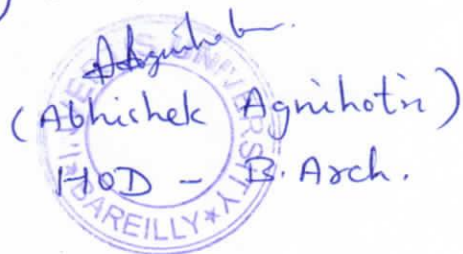 Agnihotri
(Abhishek Agnihotri)
HOD - B. Arch.
UNIVERSITY
BAREILLY